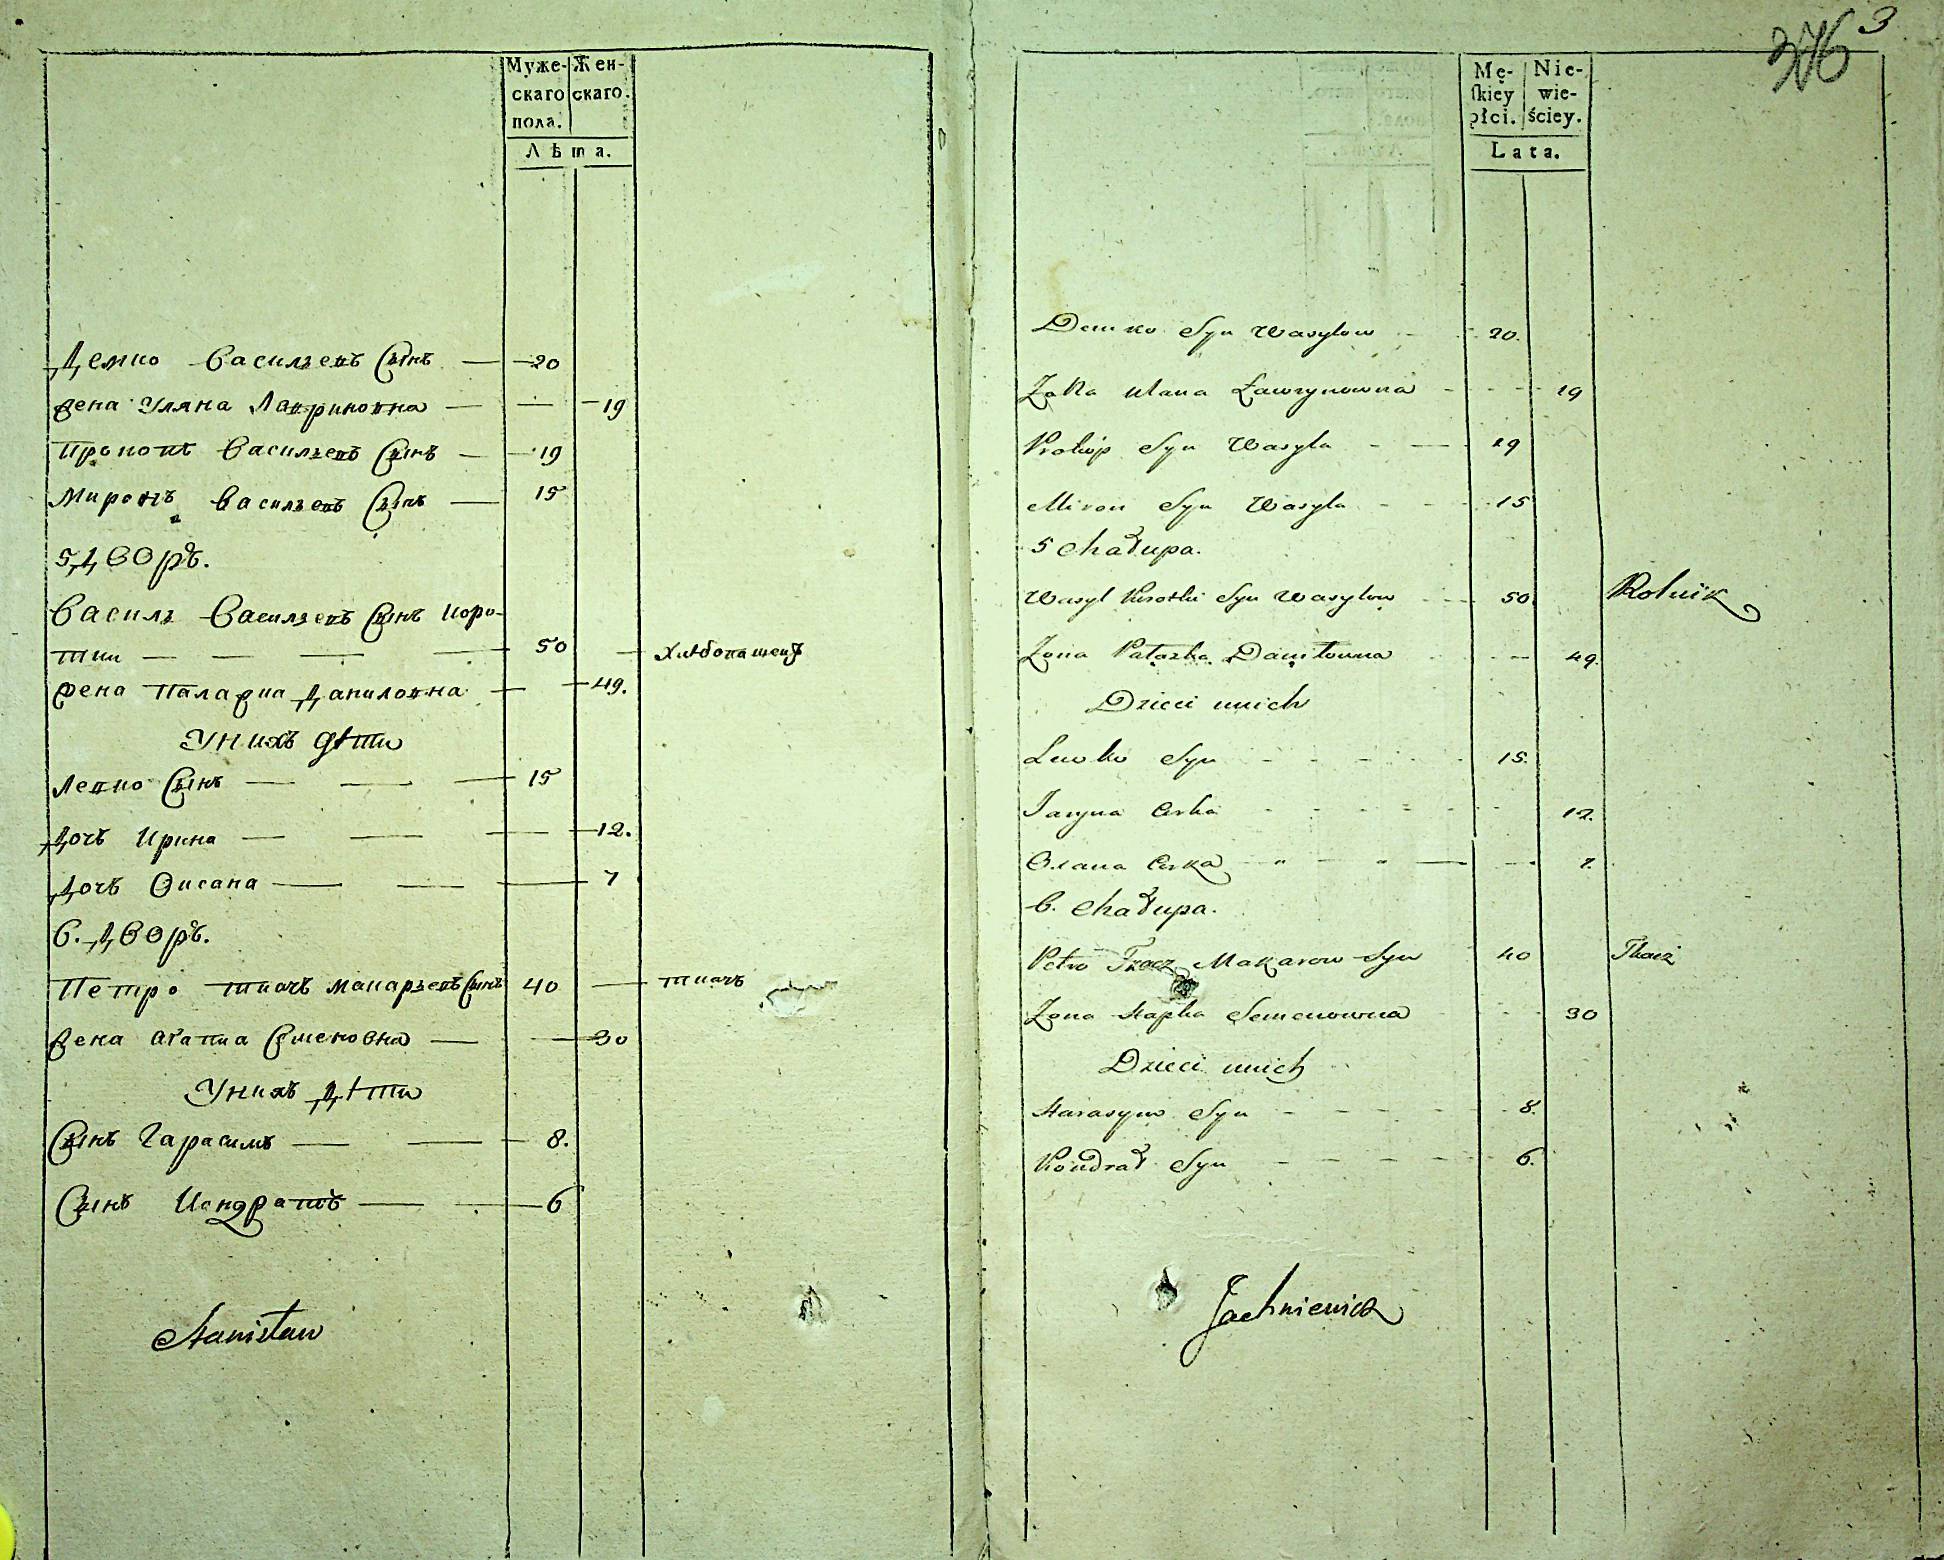 Муже- Жен-
скаго скаго.
пола.
Лѣта.
Демко Васильевъ Сынъ — 20
Жена Уляна Лавриновна — — 19
Прокопъ Васильевъ Сынъ — 19
Миронъ Васильевъ Сынъ — 15
5 Дворъ.
Василь Васильевъ Сынъ Коро-
ткий — — — — 50 — Хлѣбопашецъ
Жена Палажка Даниловна — 49.
У нихъ дѣти
Левко Сынъ — — — 15
Дочъ Ирина — — — 12.
Дочъ Оксана — — — 7
6. Дворъ.
Петро Ткачъ Макарьевъ Сынъ 40 — ткачъ
Жена Агапка Семеновна — 30
У нихъ Дѣти
Сынъ Гарасимъ — — 8.
Сынъ Кондратъ — — 6
Stanisław
376 3
Mę- Nie-
ſkiey wie-
płci. ściey.
Lata.
Demko Syn Wasylow 20.
Ulana Ławrynowna - - - 19
Prokop Syn Wasyla - — 19
Miron Syn Wasyla - - 15
5 Chałupa.
Wasyl Korotki Syn Wasylow 50 Rolnik
Żona Połaszka Daniłowna 49.
Dzieci unich
Lewko Syn - - - - 15.
Jaryna Corka - - - - 12.
Corka - - - 7.
6. Chałupa.
Petro Tkacz Makarow Syn 40 Tkacz
Żona Hapka Semenowna 30
Dzieci unich
Harasym Syn - - - - 8.
Kondrat Syn - - - - 6.
Jachniewicz